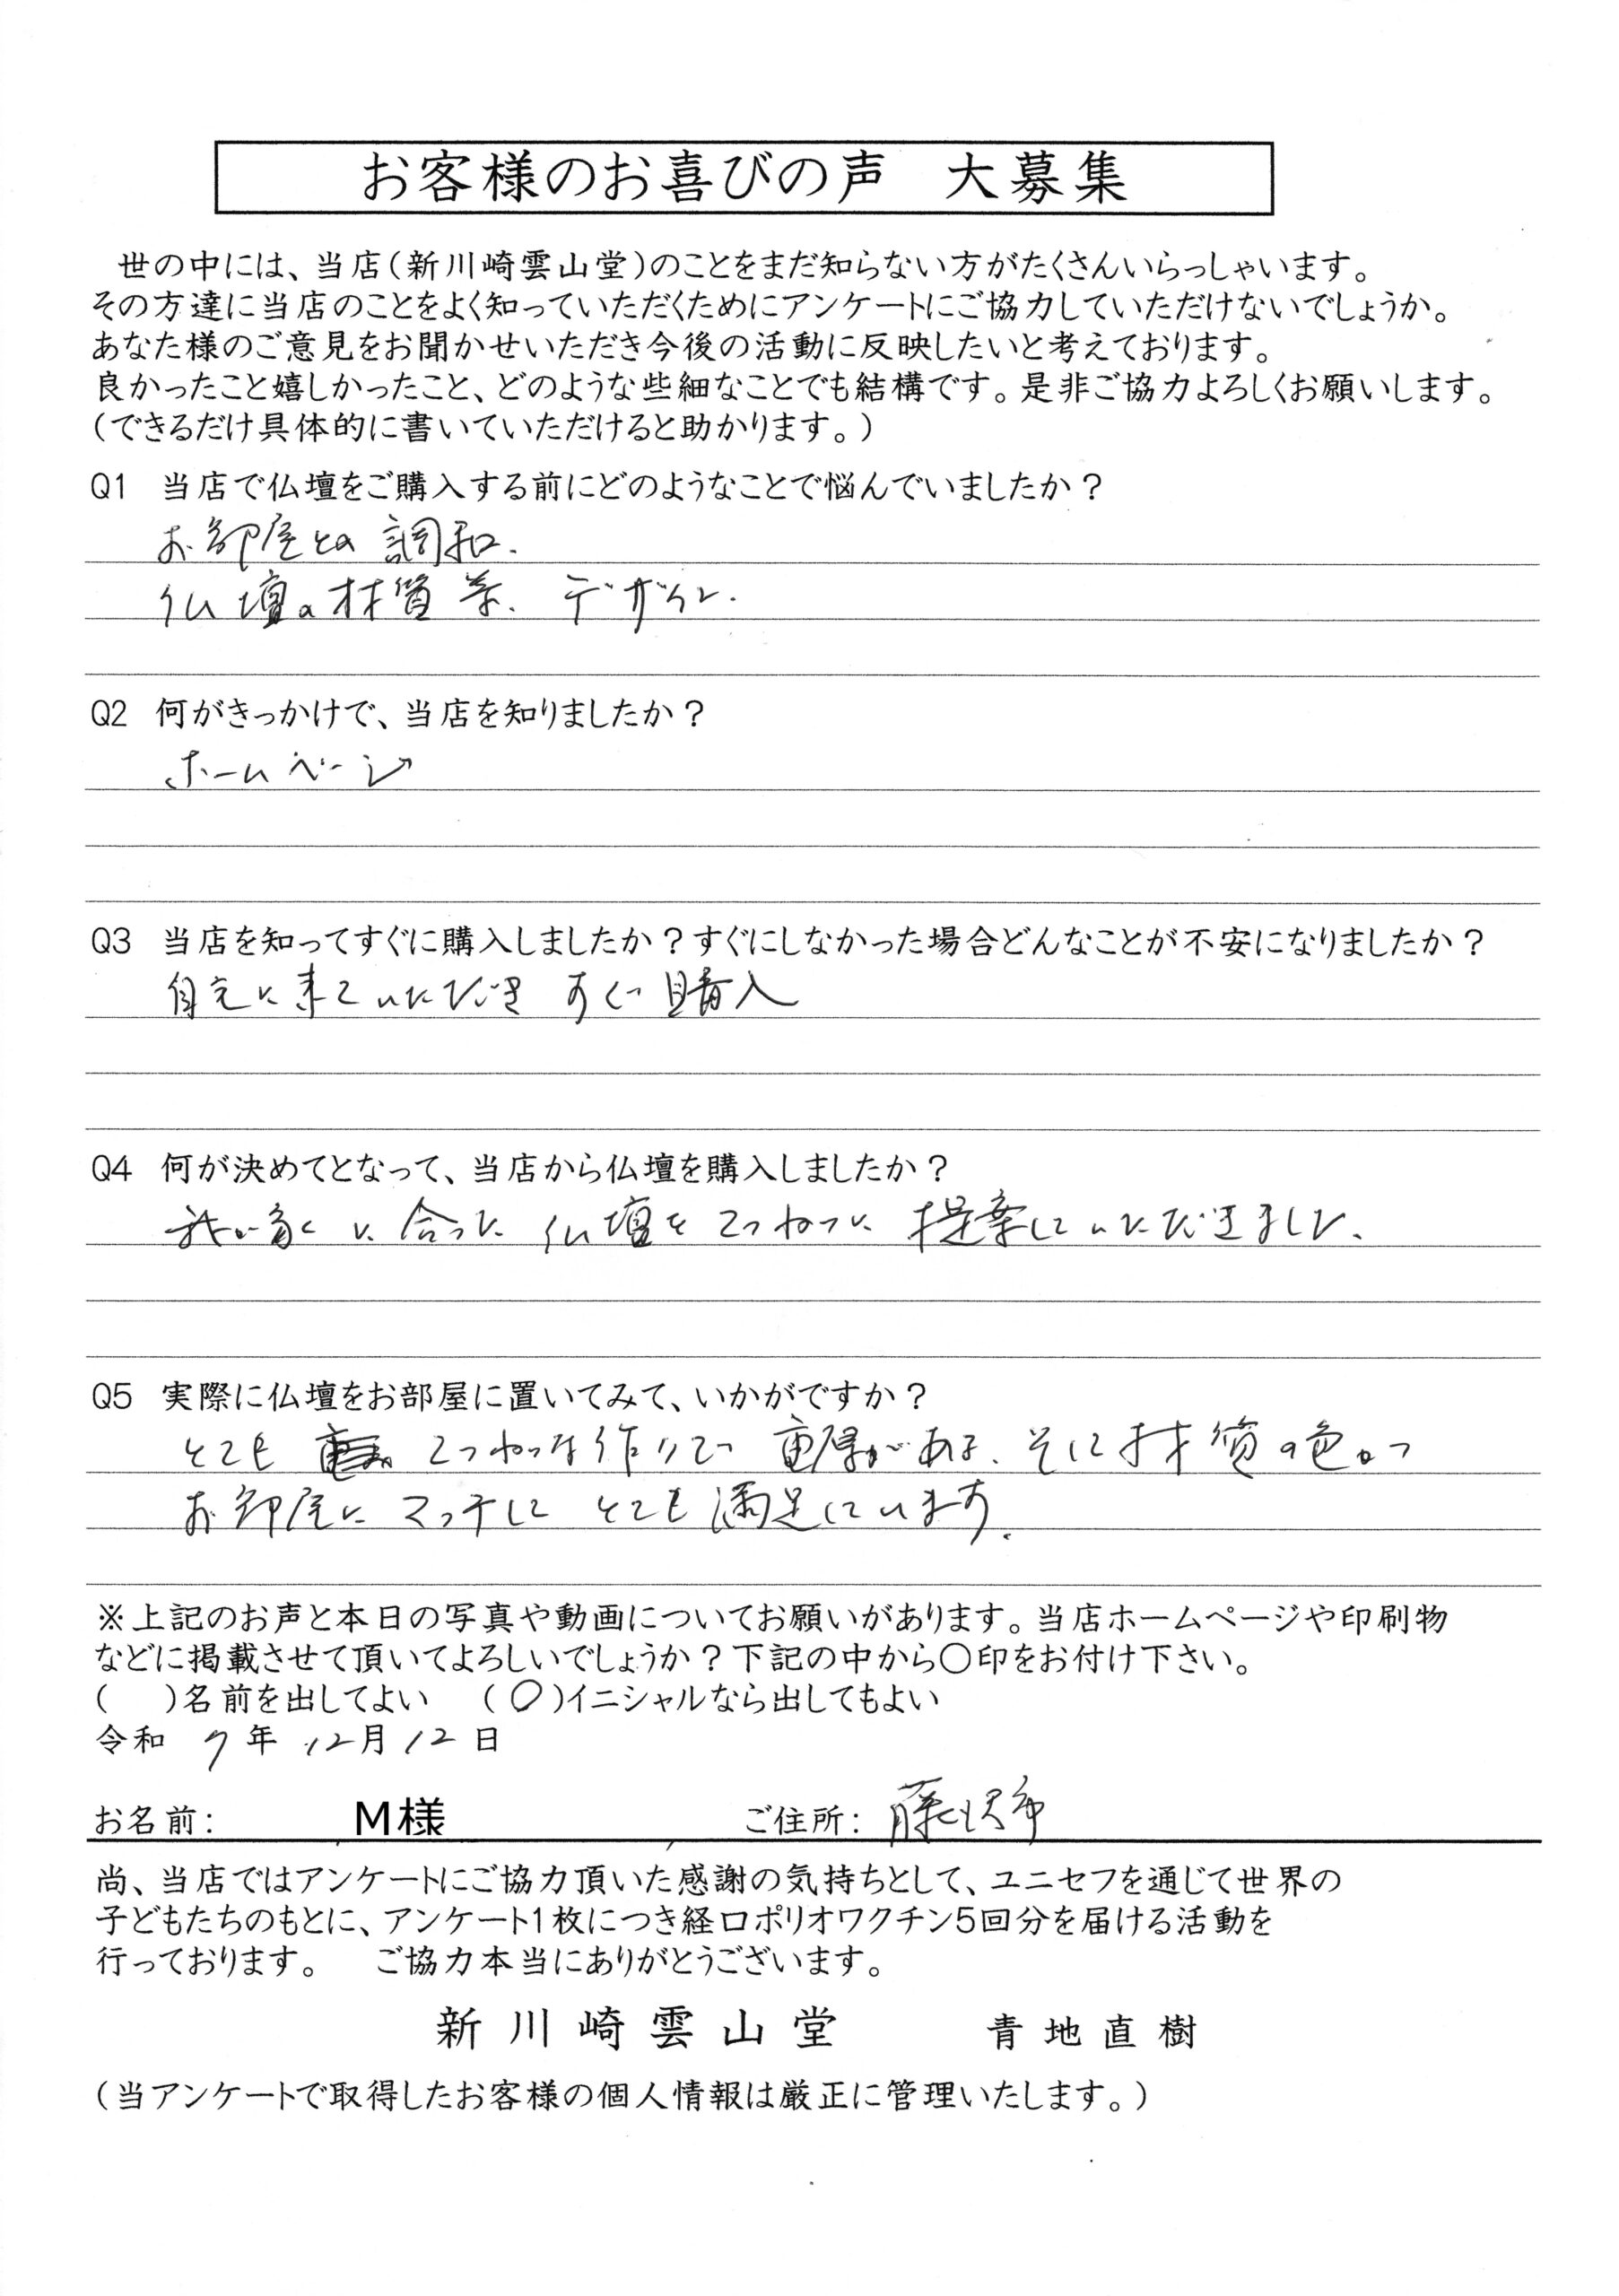 お客様のお喜びの声　大募集
世の中には、当店(新川崎雲山堂)のことをまだ知らない方がたくさんいらっしゃいます。
その方達に当店のことをよく知っていただくためにアンケートにご協力していただけないでしょうか。
あなた様のご意見をお聞かせいただき今後の活動に反映したいと考えております。
良かったこと嬉しかったこと、どのような些細なことでも結構です。是非ご協力よろしくお願いします。
(できるだけ具体的に書いていただけると助かります。)
Q1　当店で仏壇をご購入する前にどのようなことで悩んでいましたか?
お部屋との調和.
仏壇の材質等.デザイン.
Q2　何がきっかけで、当店を知りましたか?
ホームページ
Q3　当店を知ってすぐに購入しましたか?すぐにしなかった場合どんなことが不安になりましたか?
自宅に来ていただき すぐ購入
Q4　何が決めてとなって、当店から仏壇を購入しましたか?
我が家に合った仏壇をていねいに提案していただきました.
Q5　実際に仏壇をお部屋に置いてみて、いかがですか?
とても ていねいな作りで 重厚がある.そして材質の色が
お部屋にマッチして とても満足しています.
※上記のお声と本日の写真や動画についてお願いがあります。当店ホームページや印刷物
などに掲載させて頂いてよろしいでしょうか?下記の中から〇印をお付け下さい。
(　)名前を出してよい　(〇)イニシャルなら出してもよい
令和 7年 12月12日
お名前:　M様　ご住所:藤沢市
尚、当店ではアンケートにご協力頂いた感謝の気持ちとして、ユニセフを通じて世界の
子どもたちのもとに、アンケート1枚につき経口ポリオワクチン5回分を届ける活動を
行っております。　ご協力本当にありがとうございます。
新川崎雲山堂　青地直樹
(当アンケートで取得したお客様の個人情報は厳正に管理いたします。)